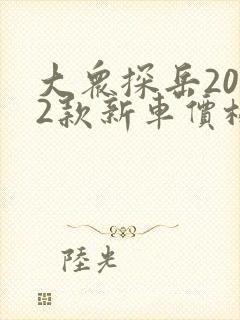 大眾探岳20
2款新車價格
陸光